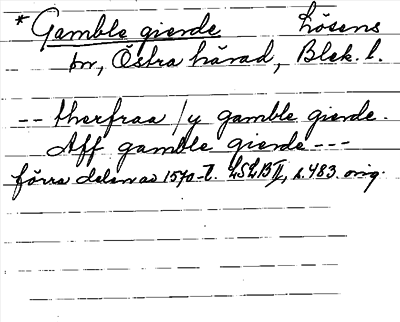 * Gamble gierde Lösens
sn, Östra härad, Blek. l.
-- therfraa / y gamble gierde.
Aff gamble gierde ---
förra delen av 1570-t. LSLB II, s. 483. orig.